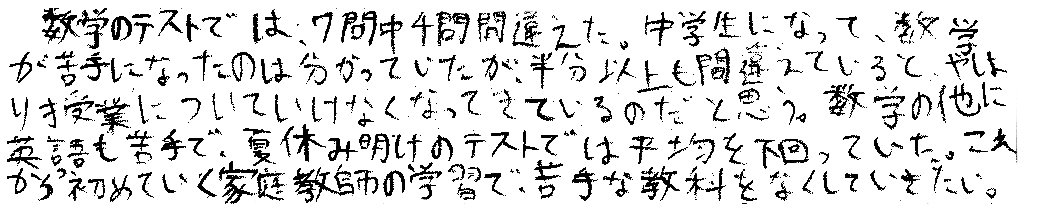 数学のテストでは、7問中4問間違えた。中学生になって、数学
が苦手になったのは分かっていたが、半分以上も間違えていると、やは
り才受業についていけなくなってきているのだと思う。数学の他に
英語も苦手で、夏休み明けのテストでは平均を下回っていた。これ
から初めていく家庭教師の学習で、苦手な教科をなくしていきたい。